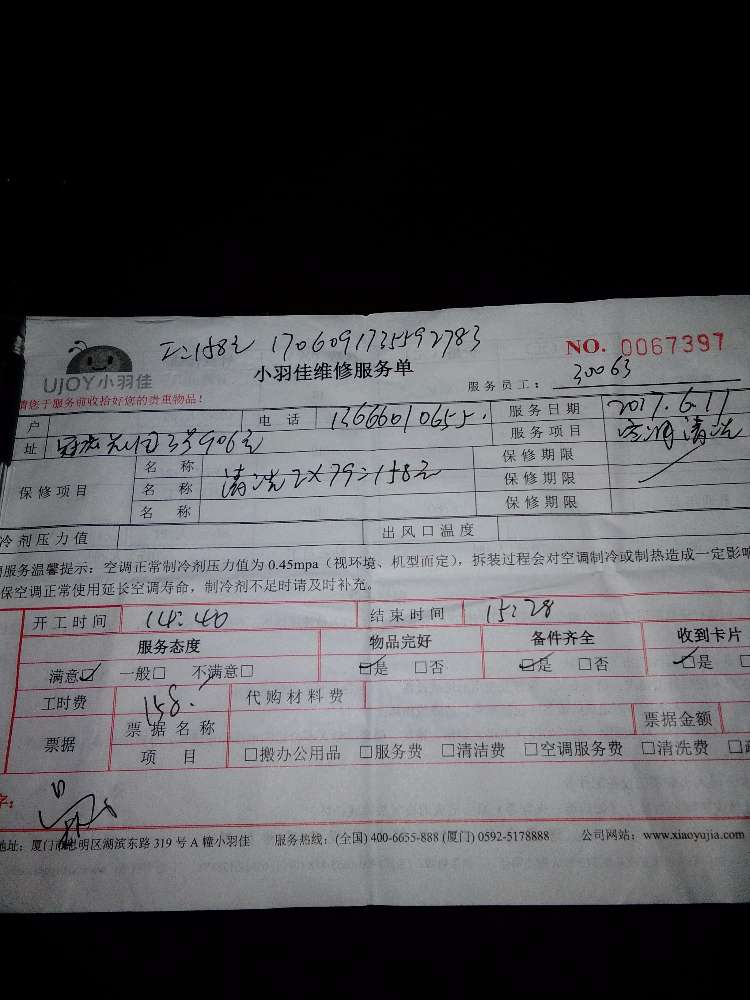 158元 1706091735592783
UJOY小羽佳
小羽佳维修服务单
NO. 0067397
服务员工: 30063
请您于服务前收拾好您的贵重物品!
户 电话 13666010655. 服务日期 2017.6.11
址 3号906室 服务项目 空调清洗
保修项目
名称 保修期限
名称 清洗2×79=158元 保修期限
名称 保修期限
冷剂压力值 出风口温度
服务温馨提示:空调正常制冷剂压力值为0.45mpa(视环境、机型而定),拆装过程会对空调制冷或制热造成一定影响
保空调正常使用延长空调寿命,制冷剂不足时请及时补充。
开工时间 14:40 结束时间 15:28
服务态度 物品完好 备件齐全 收到卡片
满意☑ 一般□ 不满意□ ☑是 □否 ☑是 □否 ☑是
工时费 158. 代购材料费
票据 票据名称 票据金额
项目 □搬办公用品 □服务费 □清洁费 □空调服务费 □清洗费
字:
地址:厦门市思明区湖滨东路319号A幢小羽佳 服务热线:(全国) 400-6655-888 (厦门) 0592-5178888 公司网站:www.xiaoyujia.com